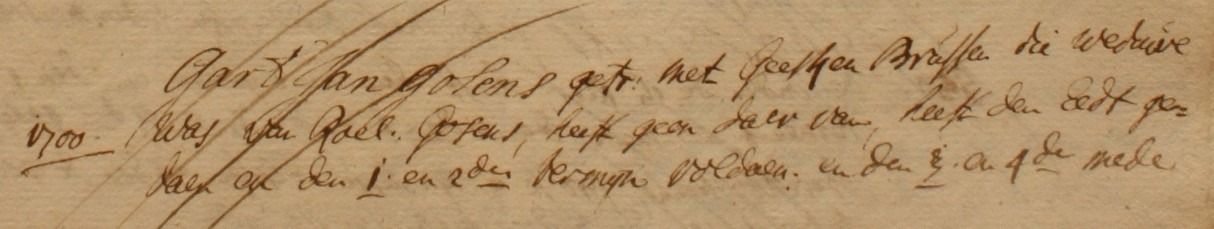 Gart Jan Gosens getr: met Geesken Brussen die weduwe
1700. was van Roel. Gosens, heeft geen daer van, heeft den Eedt ge=
daen en den 1. en 2den termijn voldaen. en den 3. en 4de mede